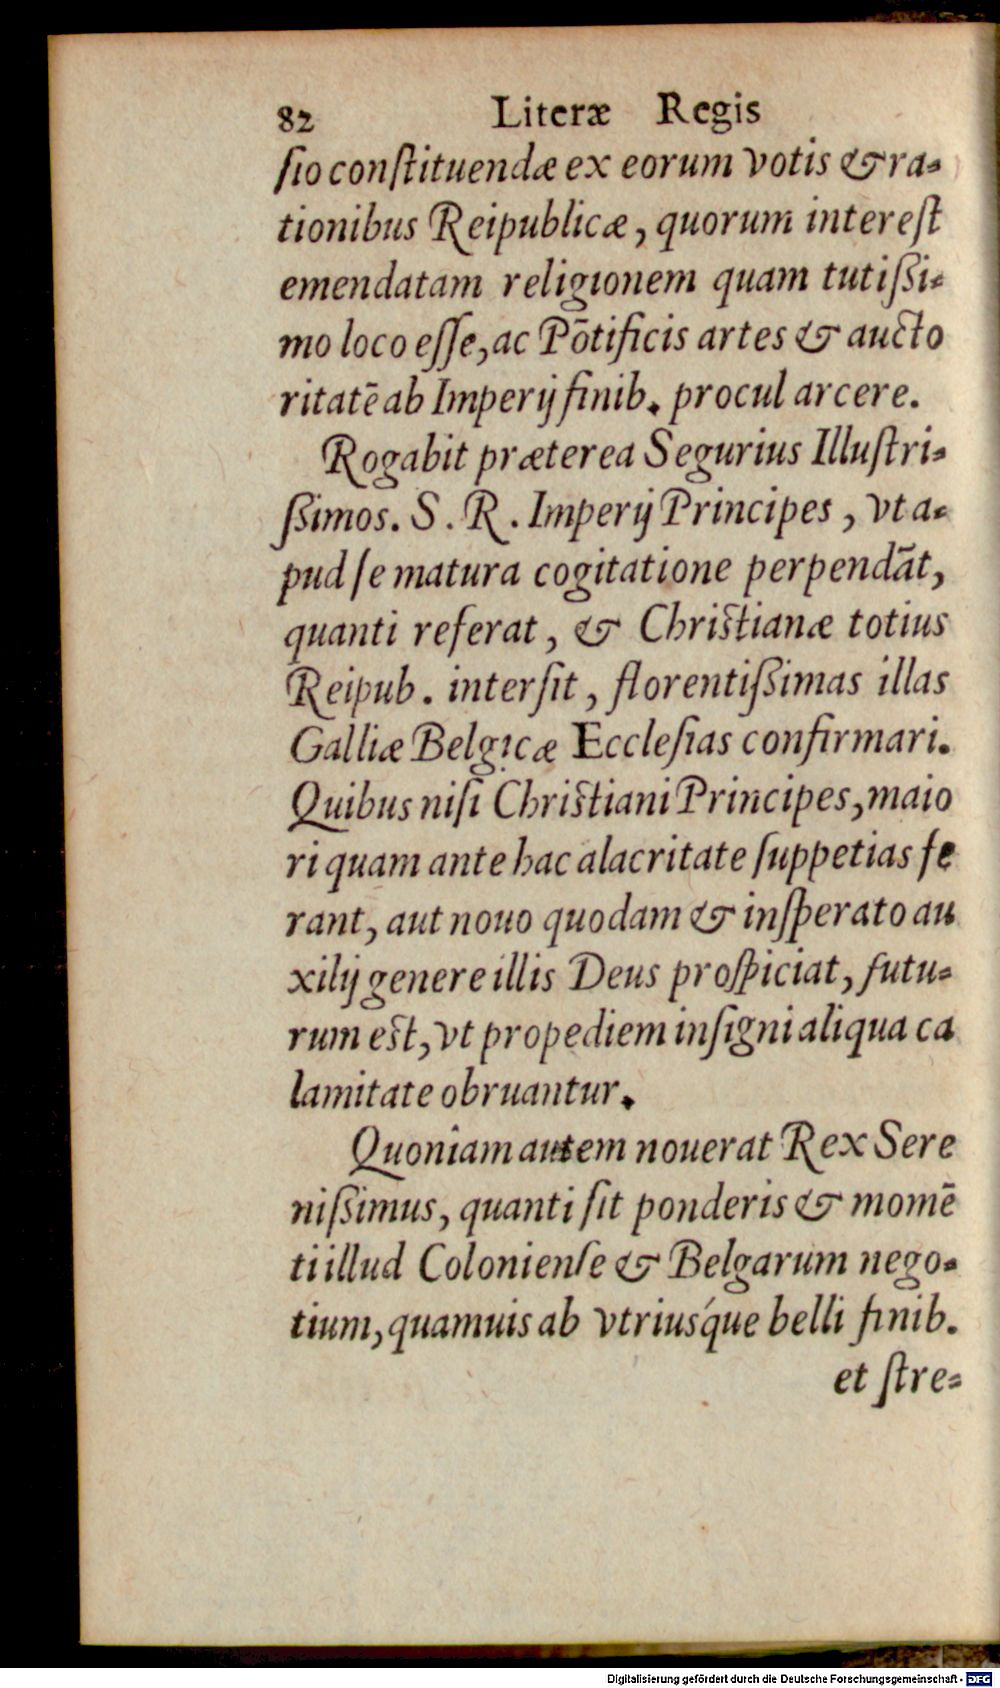 82 Literæ Regis
ſio conſtituendæ ex eorum votis & ra-
tionibus Reipublicæ, quorum intereſt
emendatam religionem quam tutiſſi-
mo loco eſſe, ac Pōtificis artes & aucto
ritatē ab Imperij finib. procul arcere.
Rogabit præterea Segurius Illuſtri-
ſſimos. S. R. Imperij Principes, vt a-
pud ſe matura cogitatione perpendāt,
quanti referat, & Chriſtianæ totius
Reipub. interſit, florentiſſimas illas
Galliæ Belgicæ Eccleſias confirmari.
Quibus niſi Chriſtiani Principes, maio
ri quam ante hac alacritate ſuppetias fe
rant, aut nouo quodam & inſperato au
xilij genere illis Deus proſpiciat, futu-
rum eſt, vt propediem inſigni aliqua ca
lamitate obruantur.
Quoniam autem nouerat Rex Sere
niſſimus, quanti ſit ponderis & momē
ti illud Colonienſe & Belgarum nego-
tium, quamuis ab vtriusq́ue belli finib.
et ſtre-
Digitalisierung gefördert durch die Deutsche Forschungsgemeinschaft - DFG